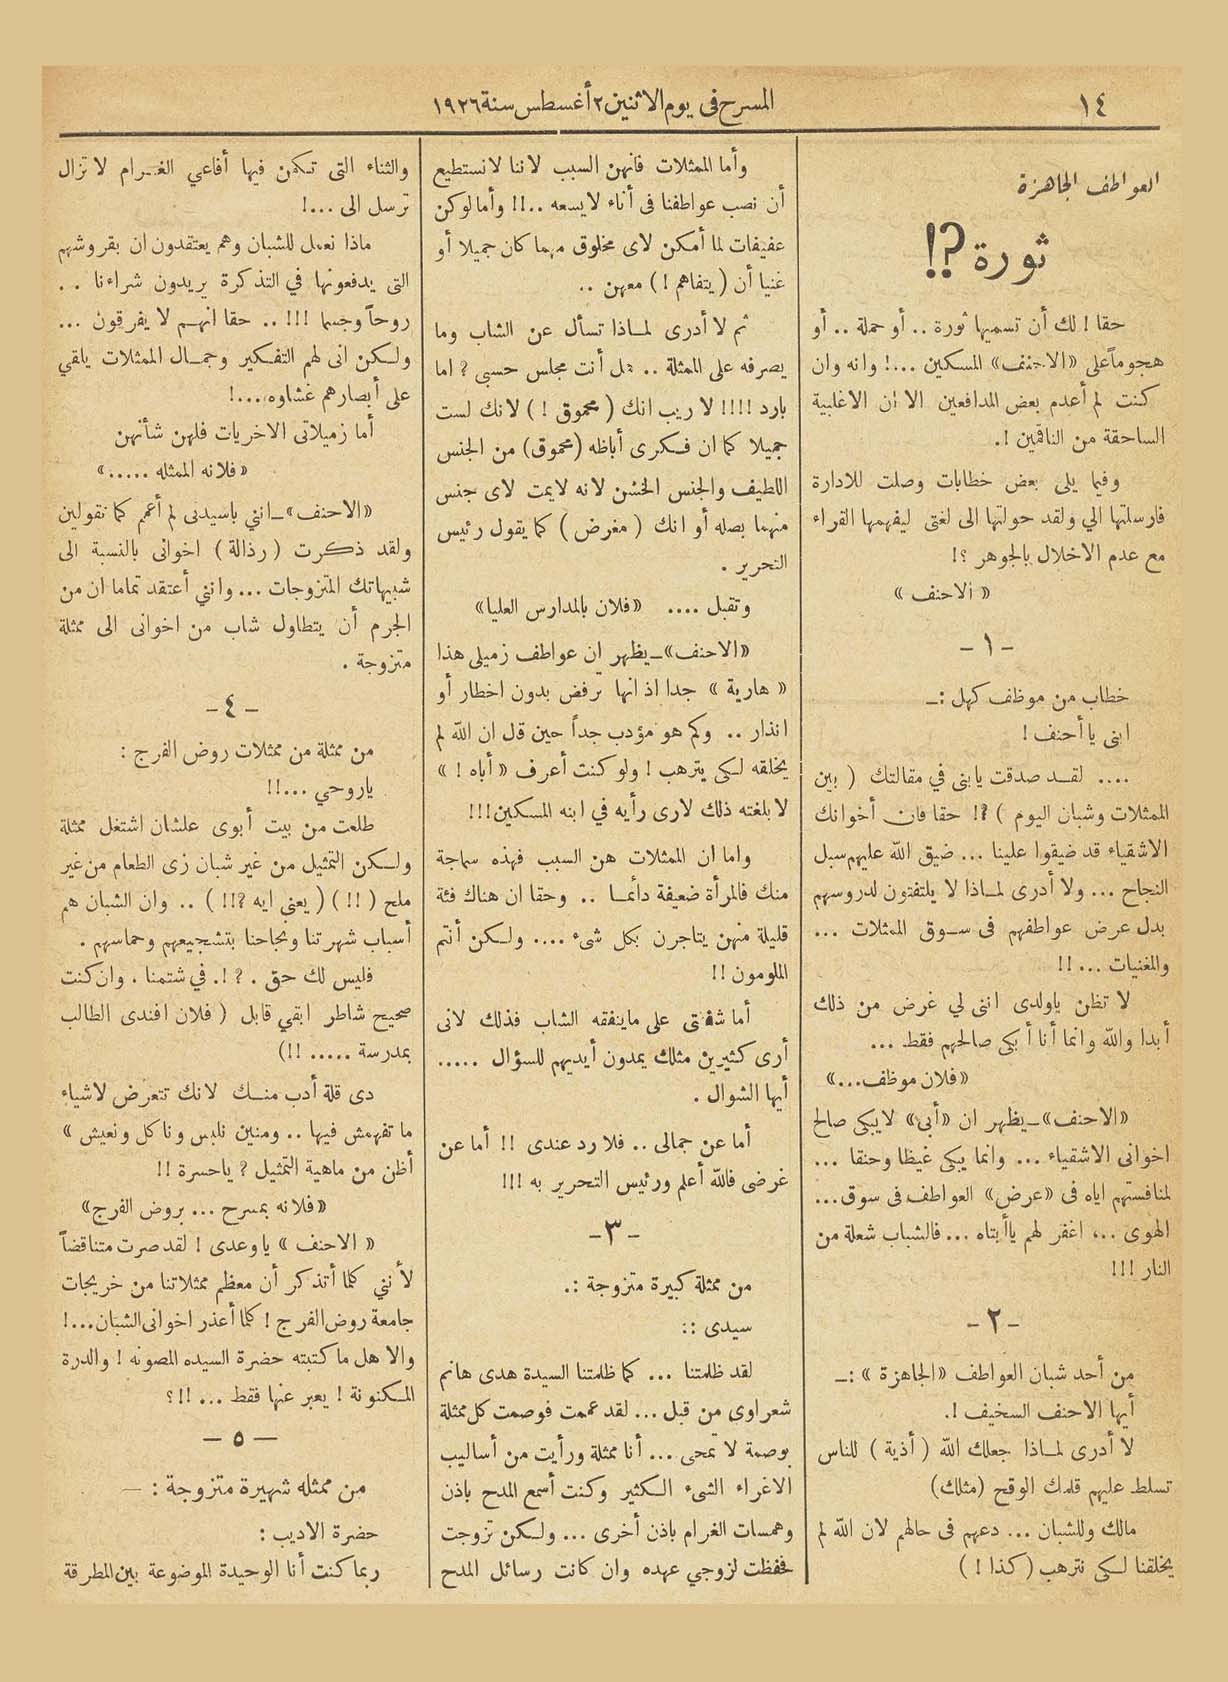 ١٤
المسرح فى يوم الاثنين ٢ أغسطس سنة ١٩٢٦
العواطف الجاهزة
ثورة ؟!
حقا ! لك أن تسميها ثورة .. أو حملة .. أو
هجوماً على «الاحنف» المسكين ...! وانه وان
كنت لم أعدم بعض المدافعين الا ان الاغلبية
الساحقة من الناقمين !.
وفيما يلى بعض خطابات وصلت للادارة
فارسلتها الي ولقد حولتها الى لغتى ليفهمها القراء
مع عدم الاخلال بالجوهر ؟!
« الاحنف »
- ١ -
خطاب من موظف كهل :ـ
ابنى يا أحنف !
.... لقد صدقت يابنى في مقالتك ( بين
الممثلات وشبان اليوم ) ؟! حقا فان أخوانك
الاشقياء قد ضيقوا علينا ... ضيق الله عليهم سبل
النجاح ... ولا أدرى لماذا لا يلتفتون لدروسهم
بدل عرض عواطفهم فى سوق الممثلات ...
والمغنيات ... !!
لا تظن ياولدى اننى لي غرض من ذلك
أبدا والله وانما أنا أبكى صالحهم فقط ...
«فلان موظف...»
«الاحنف»ـ يظهر ان «أبى» لايبكى صالح
اخوانى الاشقياء ... وانما يبكى غيظا وحنقا ...
لمنافستهم اياه فى «عرض» العواطف فى سوق...
الهوى ..، اغفر لهم ياأبتاه ... فالشباب شعلة من
النار !!!
- ٢ -
من أحد شبان العواطف «الجاهزة » :ـ
أيها الاحنف السخيف !.
لا أدرى لماذا جعلك الله ( أذية ) للناس
تسلط عليهم قلمك الوقح (مثلك)
مالك وللشبان ... دعهم فى حالهم لان الله لم
يخلقنا لكى نترهب (كذا ! )
وأما الممثلات فانهن السبب لاننا لانستطيع
أن نصب عواطفنا فى أناء لايسعه ..!! وأما لوكن
عفيفات لما أمكن لاى مخلوق مهما كان جميلا أو
غنيا أن ( يتفاهم ! ) معهن ..
ثم لا أدرى لماذا تسأل عن الشاب وما
يصرفه على الممثلة .. هل أنت مجلس حسبى ? اما
بارد !!!! لا ريب انك ( محموق ! ) لانك لست
جميلا كما ان فكرى أباظه (محموق) من الجنس
اللطيف والجنس الخشن لانه لايمت لاى جنس
منهما بصله أو انك ( مغرض ) كما يقول رئيس
التحرير .
وتقبل .... «فلان بالمدارس العليا»
«الاحنف»ـ يظهر ان عواطف زميلى هذا
« هارية » جدا اذ انها ترفض بدون اخطار أو
انذار .. وكم هو مؤدب جداً حين قال ان الله لم
يخلقه لكى يترهب ! ولو كنت أعرف « أباه ! »
لا بلغته ذلك لارى رأيه في ابنه المسكين !!!
واما ان الممثلات هن السبب فهذه سماجة
منك فالمرأة ضعيفة دائما .. وحقا ان هناك فئة
قليلة منهن يتاجرن بكل شىء .... ولكن أنتم
الملومون !!
أما شفقتى على ماينفقه الشاب فذلك لانى
أرى كثيرين مثلك يمدون أيديهم للسؤال .....
أيها الشوال .
أما عن جمالى .. فلا رد عندى !! أما عن
غرضى فالله أعلم ورئيس التحرير به !!!
- ٣ -
من ممثلة كبيرة متزوجة :.
سيدى ::
لقد ظلمتنا ... كما ظلمتنا السيدة هدى هانم
شعراوى من قبل ... لقد عممت فوصمت كل ممثلة
بوصمة لا تمحى ... أنا ممثلة ورأيت من أساليب
الاغراء الشىء الكثير وكنت أسمع المدح باذن
وهمسات الغرام باذن أخرى ... ولكن تزوجت
فحفظت لزوجي عهده وان كانت رسائل المدح
والثناء التى تكمن فيها أفاعي الغرام لا تزال
ترسل الى ...!
ماذا نعمل للشبان وهم يعتقدون ان بقروشهم
التى يدفعونها في التذكرة يريدون شراءنا . .
روحاً وجسما !!! .. حقا انهم لا يفرقون ...
ولكن انى لهم التفكير وجمال الممثلات يلقي
على أبصارهم غشاوه...!
أما زميلاتى الاخريات فلهن شأنهن
«فلانه الممثله .....»
«الاحنف»ـ انني ياسيدتى لم أعمم كما تقولين
ولقد ذكرت ( رذالة ) اخوانى بالنسبة الى
شبيهاتك المتزوجات ... وانني أعتقد تماما ان من
الجرم أن يتطاول شاب من اخوانى الى ممثلة
متزوجة .
- ٤ -
من ممثلة من ممثلات روض الفرج :
ياروحي ...!!
طلعت من بيت أبوى علشان اشتغل ممثلة
ولكن التمثيل من غير شبان زى الطعام من غير
ملح ( !! ) ( يعنى ايه ?!! ) .. وان الشبان هم
أسباب شهرتنا ونجاحنا بتشجيعهم وحماسهم .
فليس لك حق . ?!. في شتمنا . وان كنت
صحيح شاطر ابقي قابل ( فلان افندى الطالب
بمدرسة ..... !!)
دى قلة أدب منك لانك تتعرض لاشياء
ما تفهمش فيها .. ومنين نلبس وناكل ونعيش »
أظن من ماهية التمثيل ? ياحسرة !!
«فلانه بمسرح ... بروض الفرج»
« الاحنف » ياوعدى ! لقد صرت متناقضاً
لأنني كلما أتذكر أن معظم ممثلاتنا من خريجات
جامعة روض الفرج ! كلما أعذر اخوانى الشبان...!
والا هل ما كتبته حضرة السيده المصونه ! والدرة
المكنونة ! يعبر عنها فقط ... !!؟
— ٥ —
من ممثله شهيرة متزوجة : —
حضرة الاديب :
ربما كنت أنا الوحيدة الموضوعة بين المطرقة